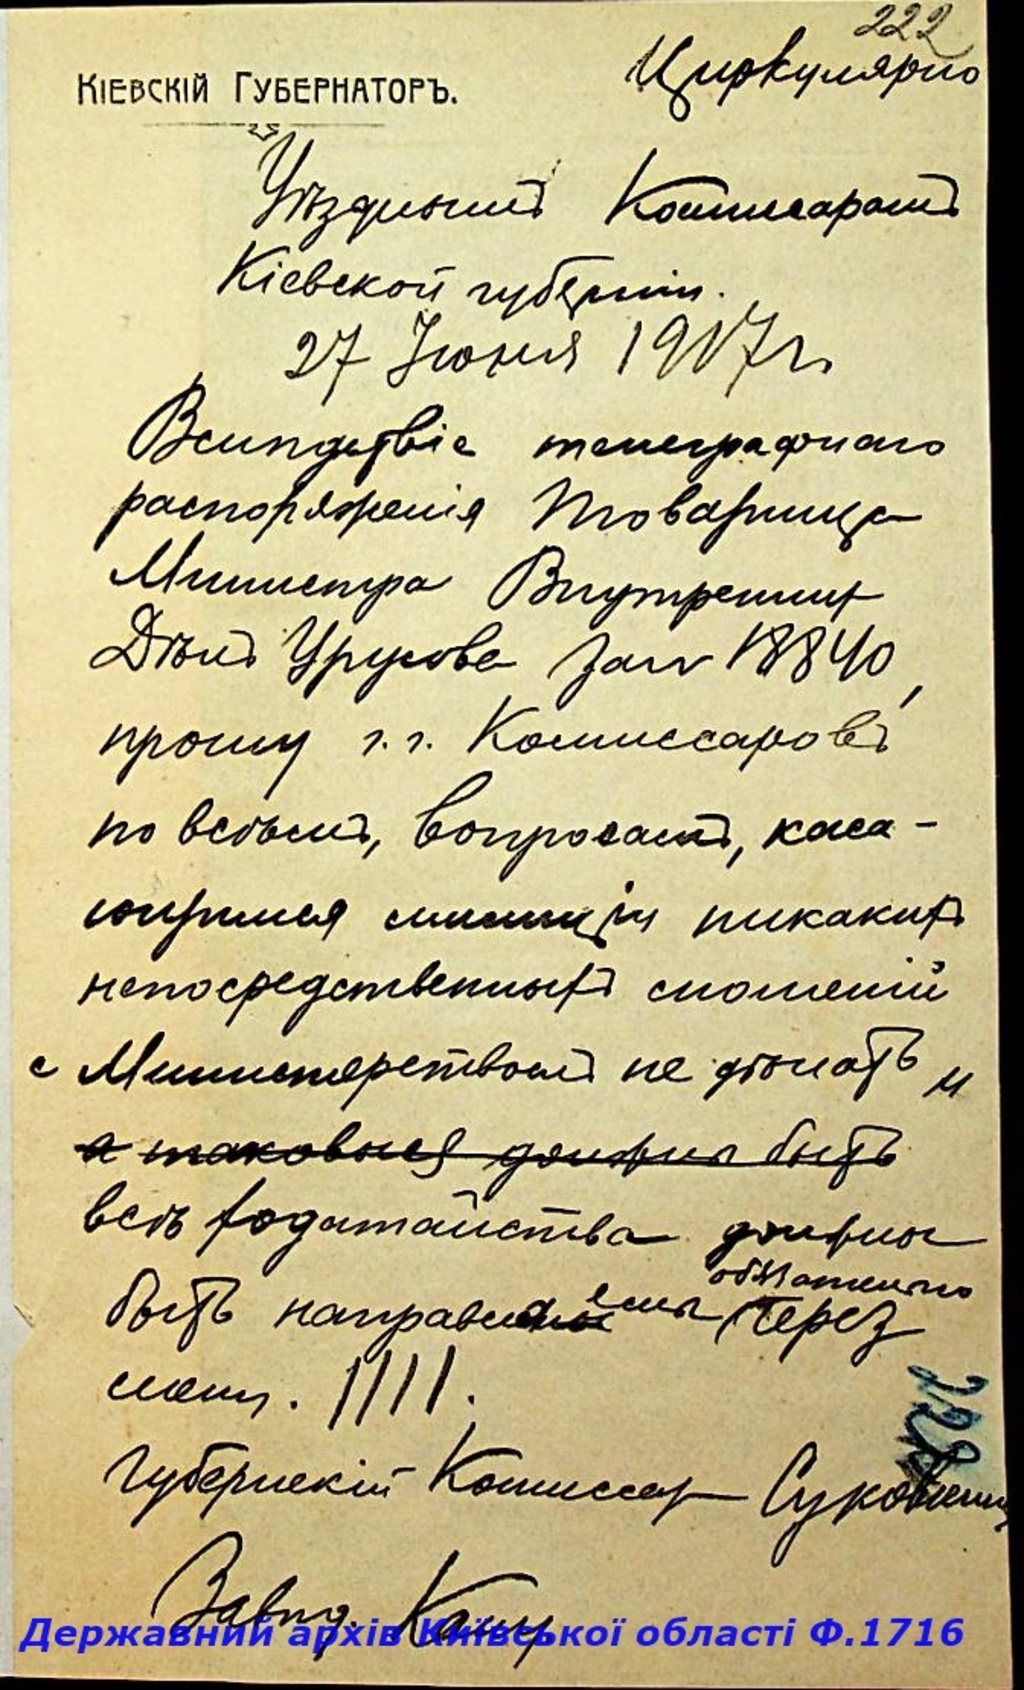 222
Циркулярно
КІЕВСКІЙ ГУБЕРНАТОРЪ.
Уѣзднымъ Комиссарамъ
Кіевской губерніи.
27 Іюня 1917 г.
Вслѣдствіе телеграфнаго
распоряженія Товарища
Министра Внутреннихъ
Дѣлъ Урусова за № 18840,
прошу г.г. Комиссаровъ
по всѣмъ, вопросамъ, каса-
ющимся милиціи никакихъ
непосредственныхъ сношеній
с Министерствомъ не дѣлать и
а таковыя должны быть
всѣ ходатайства должны
обязательно
быть направляемы через
мою.
Губернскій Комиссар Суковкин
Завѣд. Канц
228
Державний архів Київської області Ф.1716